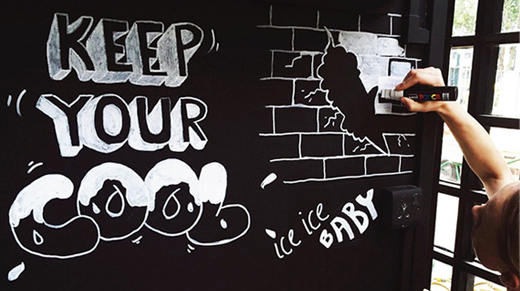 KEEP
YOUR
COOL
ice ice
BABY